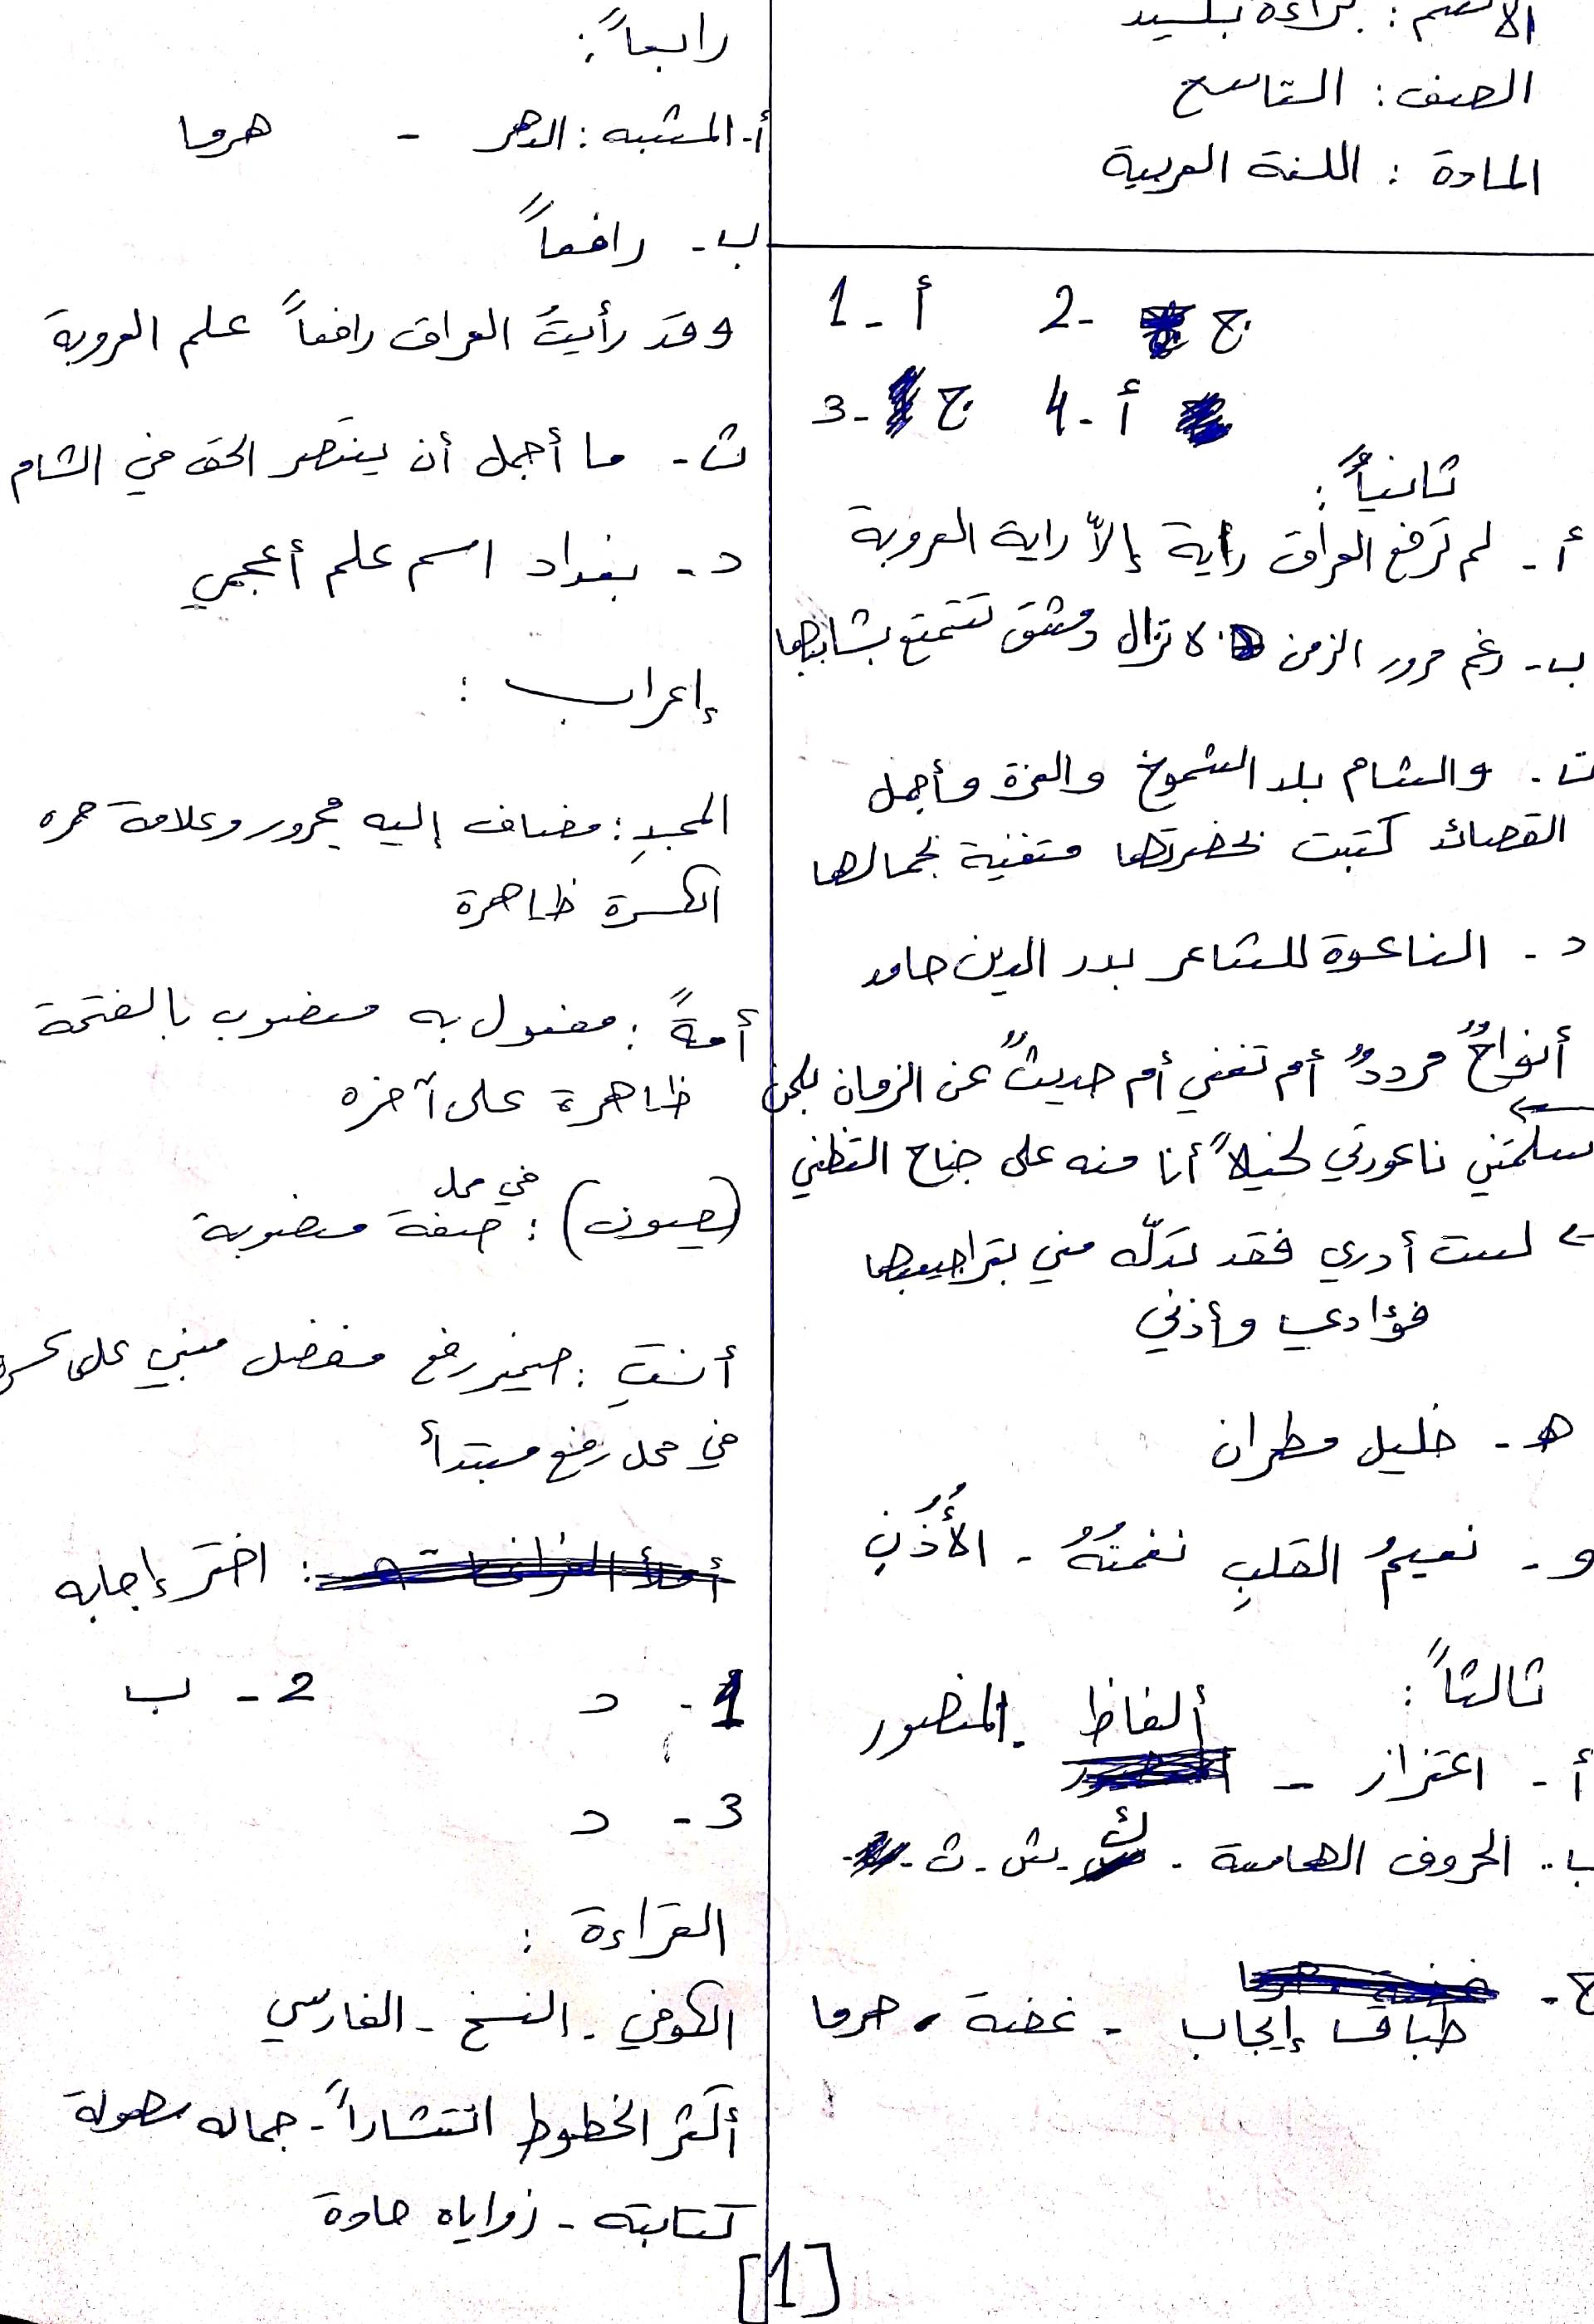 الاسم : براءة بلسيد
الصف : التاسع
المادة : اللغة العربية
1 - أ 2 - ج
3 - ج 4 - أ
ثانياً :
أ - لم ترفع العراق راية إلاّ راية العروبة
ب - رغم مرور الزمن لا تزال دمشق تتمتع بشبابها
ت - والشام بلد الشموخ والعزة وأجمل
القصائد كتبت بحضرتها متغنية بجمالها
د - الناعوة للشاعر بدر الدين حامد
أنواحٌ مرددٌ أم تغني أم حديثٌ عن الزمان بلحن
سلمتني ناعورتي لخيلاً أنا منه على جناح التظني
لست أدري فقد تدلّه مني بتراجيعها
فؤادي وأذني
هـ - خليل مطران
و - نعيمُ القلبِ نغمتُهُ - الأُذُنِ
ثالثاً :
أ - اعتزاز - ألفاظ - المنصور
ب - الحروف الهامسة - ك - ش - ث -
ج -
طباق إيجاب - غضة ، هرما
رابعاً :
أ - المشبه : الدهر - هرما
ب - رافعاً
وقد رأيتُ العراق رافعاً علم العروبة
ث - ما أجمل أن ينتصر الحق في الشام
د - بغداد اسم علم أعجمي
إعراب :
المجدِ : مضاف إليه مجرور وعلامة جره
الكسرة ظاهرة
أمةً : مفعول به منصوب بالفتحة
ظاهرة على آخره
(يصيون) : في محل صفة منصوبة
أنتِ : ضمير رفع منفصل مبني على كسر
في محل رفع مبتدأ
: اختر إجابه
1 - د 2 - ب
3 - د
القراءة :
الكوفي - النسخ - الفارسي
أكثر الخطوط انتشاراً - جماله سهولة
كتابته - زواياه حادة
[1]